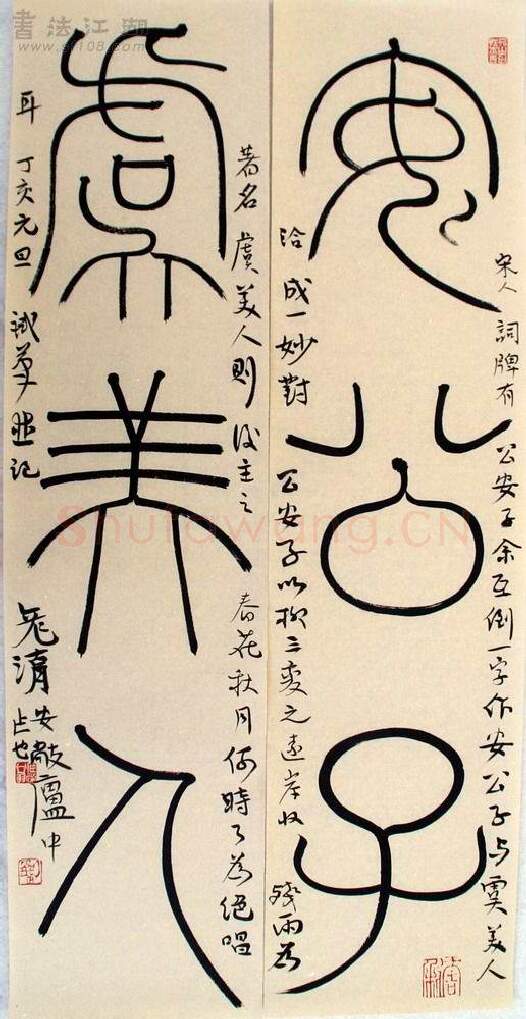 書法江湖
www.sf108.com
安公子
宋人詞牌有公安子余互倒一字作安公子与虞美人
洽成一妙對公安子以柳三變之遠岸收殘雨为
虞美人
著名虞美人則後主之春花秋月何時了為絕唱
耳丁亥元旦試並記
清安廬中
Shufawang.CN